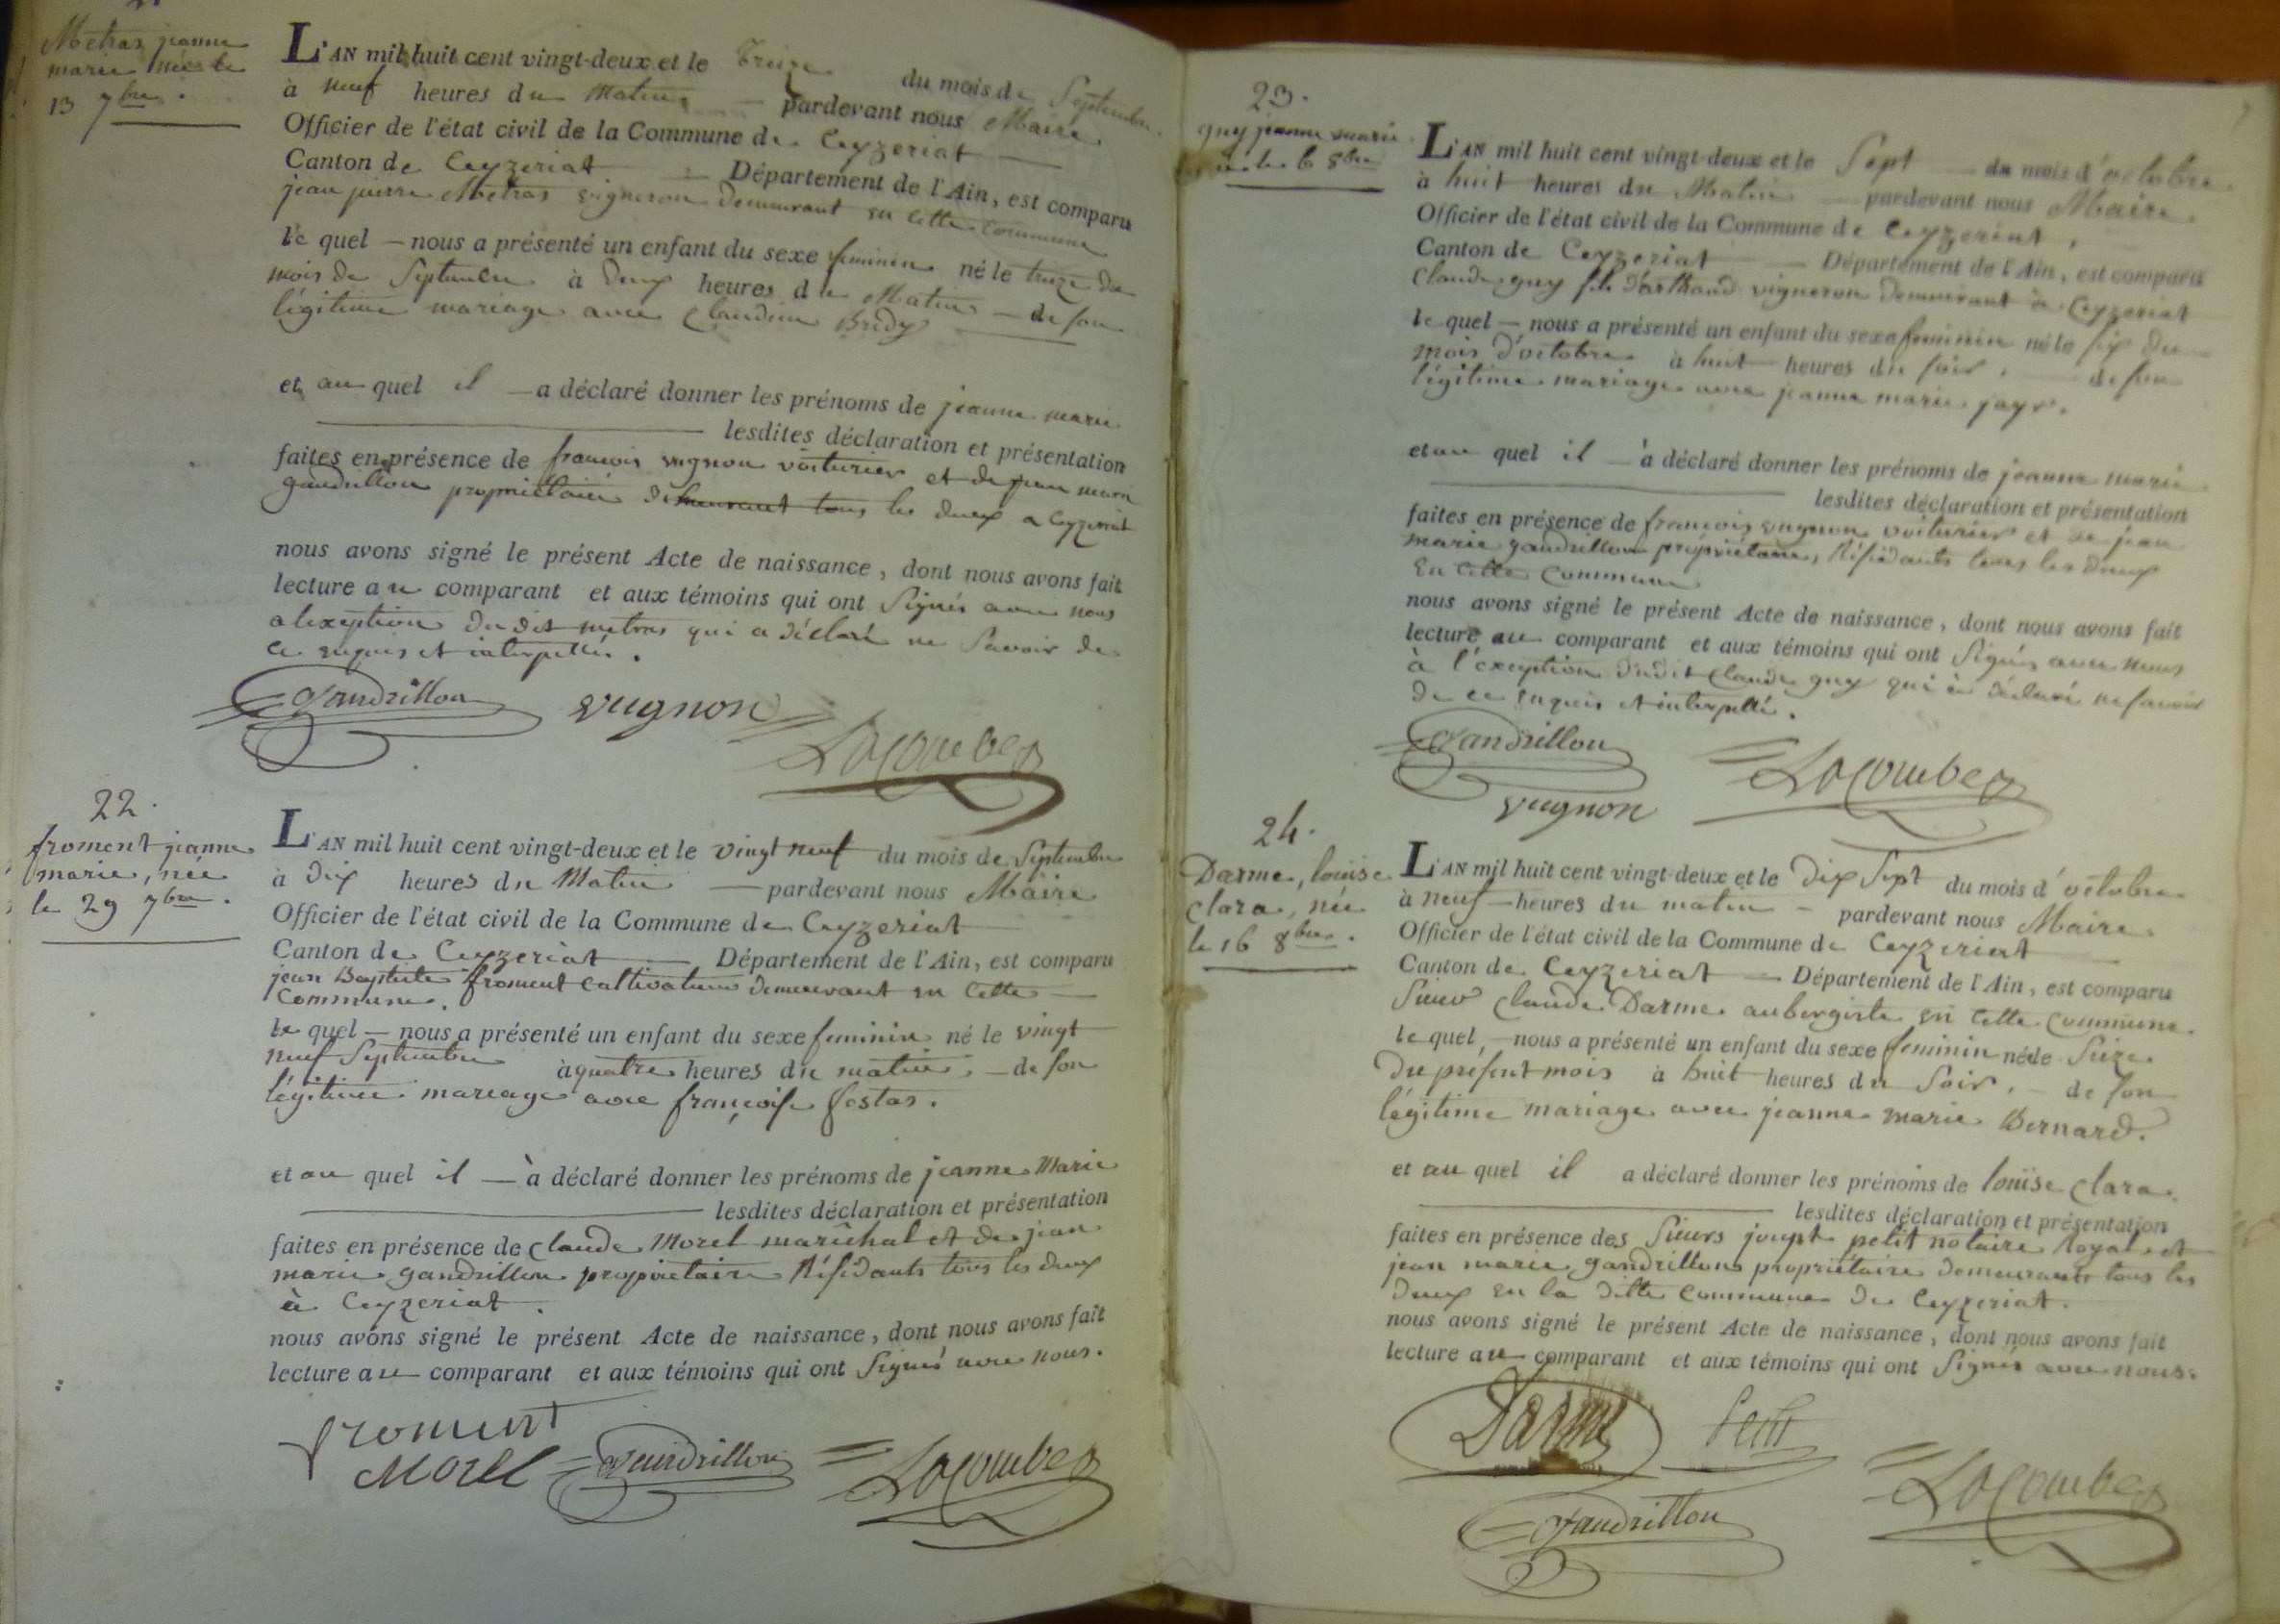 Metras jeanne
marie née le
13 7bre.
L'AN mil huit cent vingt-deux et le Treize du mois de Septembre
à neuf heures du Matin — pardevant nous Maire
Officier de l'état civil de la Commune de Ceyzeriat —
Canton de Ceyzeriat — Département de l'Ain, est comparu
jean pierre Metras vigneron demeurant en cette Commune
le quel — nous a présenté un enfant du sexe feminin né le treize du
mois de Septembre à deux heures du Matin — de son
légitime mariage avec Claudine Bredy
et au quel il — a déclaré donner les prénoms de jeanne marie
lesdites déclaration et présentation
faites en présence de francois vugnon voiturier et de jean marie
gandrillon propriétaire demeurant tous les deux a Ceyzeriat
nous avons signé le présent Acte de naissance, dont nous avons fait
lecture au comparant et aux témoins qui ont Signés avec nous
a lexeption du dit metras qui a déclaré ne Savoir de
ce enquis et interpellé.
Gandrillon vugnon
Lacombe
22.
froment jeanne
marie, née
le 29 7bre.
L'AN mil huit cent vingt-deux et le vingt neuf du mois de Septembre
à dix heures du Matin — pardevant nous Maire
Officier de l'état civil de la Commune de Ceyzeriat
Canton de Ceyzeriat — Département de l'Ain, est comparu
jean Baptiste froment cultivateur demeurant en cette —
Commune.
le quel — nous a présenté un enfant du sexe feminin né le vingt
neuf Septembre à quatre heures du matin — de son
légitime mariage avec françoise festas.
et au quel il — à déclaré donner les prénoms de jeanne Marie
lesdites déclaration et présentation
faites en présence de Claude Morel marêchal et de jean
marie gandrillon propriétaire Résidants tous les deux
à Ceyzeriat.
nous avons signé le présent Acte de naissance, dont nous avons fait
lecture au comparant et aux témoins qui ont Signés avec nous.
froment
Morel Gandrillon Lacombe
23.
guy jeanne marie
née le 6 8bre
L'AN mil huit cent vingt-deux et le Sept — du mois d'octobre
à huit heures du Matin — pardevant nous Maire
Officier de l'état civil de la Commune de Ceyzeriat,
Canton de Ceyzeriat — Département de l'Ain, est comparu
Claude guy fils d'arthaud vigneron demeurant à Ceyzeriat
le quel — nous a présenté un enfant du sexe feminin né le six du
mois d'octobre à huit heures du soir, — de son
légitime mariage avec jeanne marie jayr.
et au quel il — à déclaré donner les prénoms de jeanne marie
lesdites déclaration et présentation
faites en présence de francois vugnon voiturier et de jean
marie gandrillon propriétaire, Résidants tous les deux
en cette Commune
nous avons signé le présent Acte de naissance, dont nous avons fait
lecture au comparant et aux témoins qui ont Signés avec nous
à l'éxception dudit Claude guy qui à déclaré ne savoir
de ce enquis et interpellé.
Gandrillon Lacombe
vugnon
24.
Darme, louise
Clara, née
le 16 8bre.
L'AN mil huit cent vingt-deux et le dix Sept du mois d'octobre
à neuf — heures du matin — pardevant nous Maire
Officier de l'état civil de la Commune de Ceyzeriat
Canton de Ceyzeriat — Département de l'Ain, est comparu
Sieur Claude Darme aubergiste en cette Commune
le quel, — nous a présenté un enfant du sexe feminin né le Seize
du présent mois à huit heures du Soir, — de son
légitime mariage avec jeanne marie Bernard.
et au quel il a déclaré donner les prénoms de louïse Clara
lesdites déclaration et présentation
faites en présence des Sieurs joseph petit notaire Royal et
jean marie gandrillon propriétaire demeurants tous les
deux en la ditte Commune de Ceyzeriat.
nous avons signé le présent Acte de naissance, dont nous avons fait
lecture au comparant et aux témoins qui ont Signés avec nous.
Darme Petit
Lacombe
Gandrillon